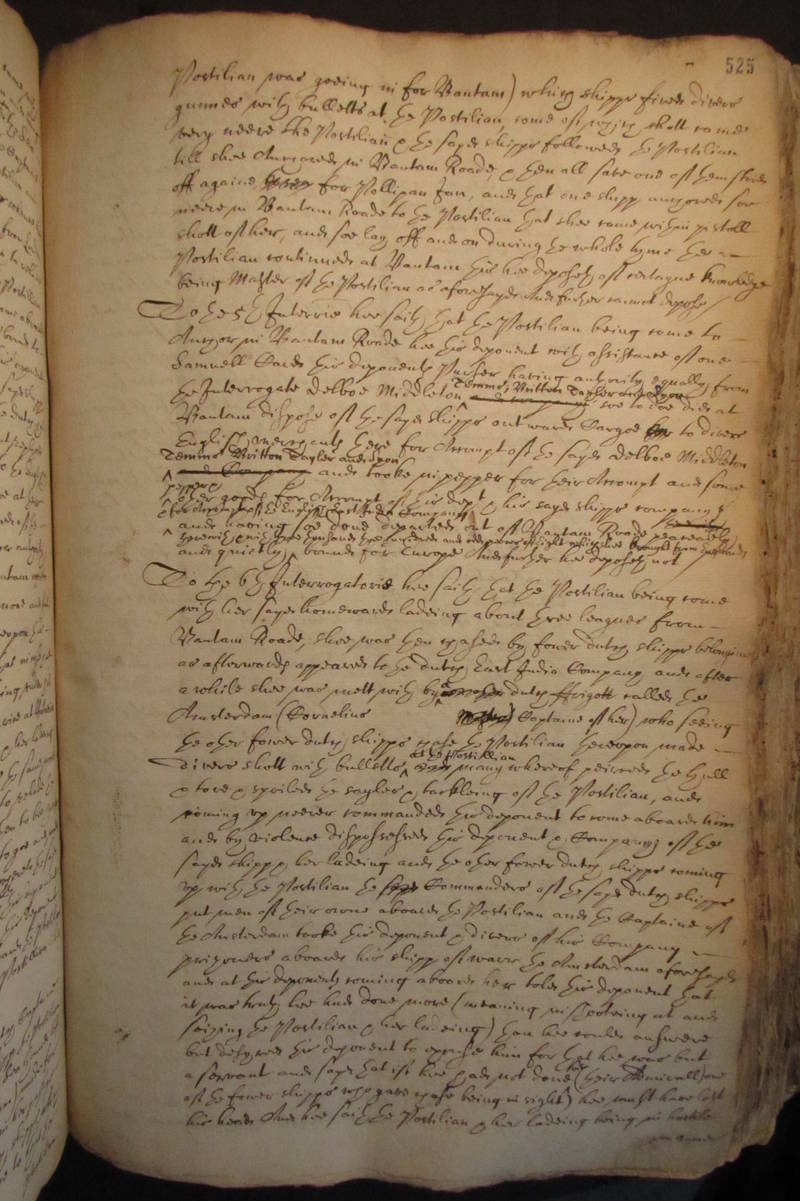 525
Postilian was goeing in for Bantam) which shipps fired divers
gunnes with bulletts at the Postilian, some of which shott came
very neere the Postilian & the sayd shipps followed the Postilian
till shee Anchored in Bantam Roade, & then all save one of them stood
off againe for Pollipan Jan, and that one shipp anchored soe
neere in Bantam Roade to the Postilian that shee came within pistoll
shott of her, and soe lay off and on during the whole tyme the
Postilian continued at Bantam this hee deposeth of certayne knowledge
being Master of the Postilian as aforesayd And further cannot depose
To the 5th Interrie hee saith that the Postilian being come to
Anchor in Bantam Roade hee this deponent with assistance of one
Samuell this deponents Purser having authority equally from
the Interrogate Delboe Middleton Temms, Mitton Tayler and Upton soe to doe did at
Bantam dispose of the sayd shipps outward Cargoe to divers
English merchants there for Accompt of the sayd Delboe Middleton
Temms Mitton Tayler and Upton and tooke in pepper for their Accompt and some
pepper & other goods for Accompt of this dept & his sayd shipps company
& for Accompt of the English East India Company
and having soe done departed out of Bantam Roade peaceably
and quietly bound for Europe And further hee deposeth not
To the 6th Interrogatorie hee saith that the Postilian being come
with her sayd homewards ladeing about three leagues from
Bantam Roade, shee was then chased by fower dutch shipps belonging
as afterwards appeared to the dutch East India Company and after
a while shee was mett with by dutch ffrigott called the
Amsterdam (Cornelius Captaine of her) who seeing
the other fower dutch shipps chase the Postilian thereupon made
divers shott with bulletts at the Postillian many whereof peirced the Hull
& tore & spoiled the sayles & tackleing of the Postilian, and
coming up neerer commanded this deponent to come aboard him
and by violence dispossessed this deponent & Company of the
sayd shipp & her ladeing and the other fower dutch shipps coming
up with the Postilian the Commanders of the sayd dutch shipps
put men of their owne aboard the Postilian and the Captaine of
the Amsterdam tooke this deponent & divers of his Company
prisoners aboard his shipp of warr the Amsterdam aforesayd
and at this deponents coming aboard her told this deponent that
it was true hee had done more (meaning in shooteing at and
seizing the Postilian & her ladeing) than hee could answere
but desyred this deponent to excuse him for that hee was but
a servant and sayd that if hee had not done (their Admirall) one
of the fower shipps who gave chase being in sight) hee must have lost
his head And hee saith the Postilian & her ladeing being in hostile
manner